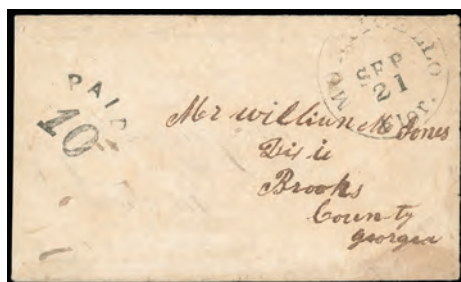 PAID
10
MONTICELLO
SEP
21
Flor.
Mr william M Jones
Dixie
Brooks
County
georgia